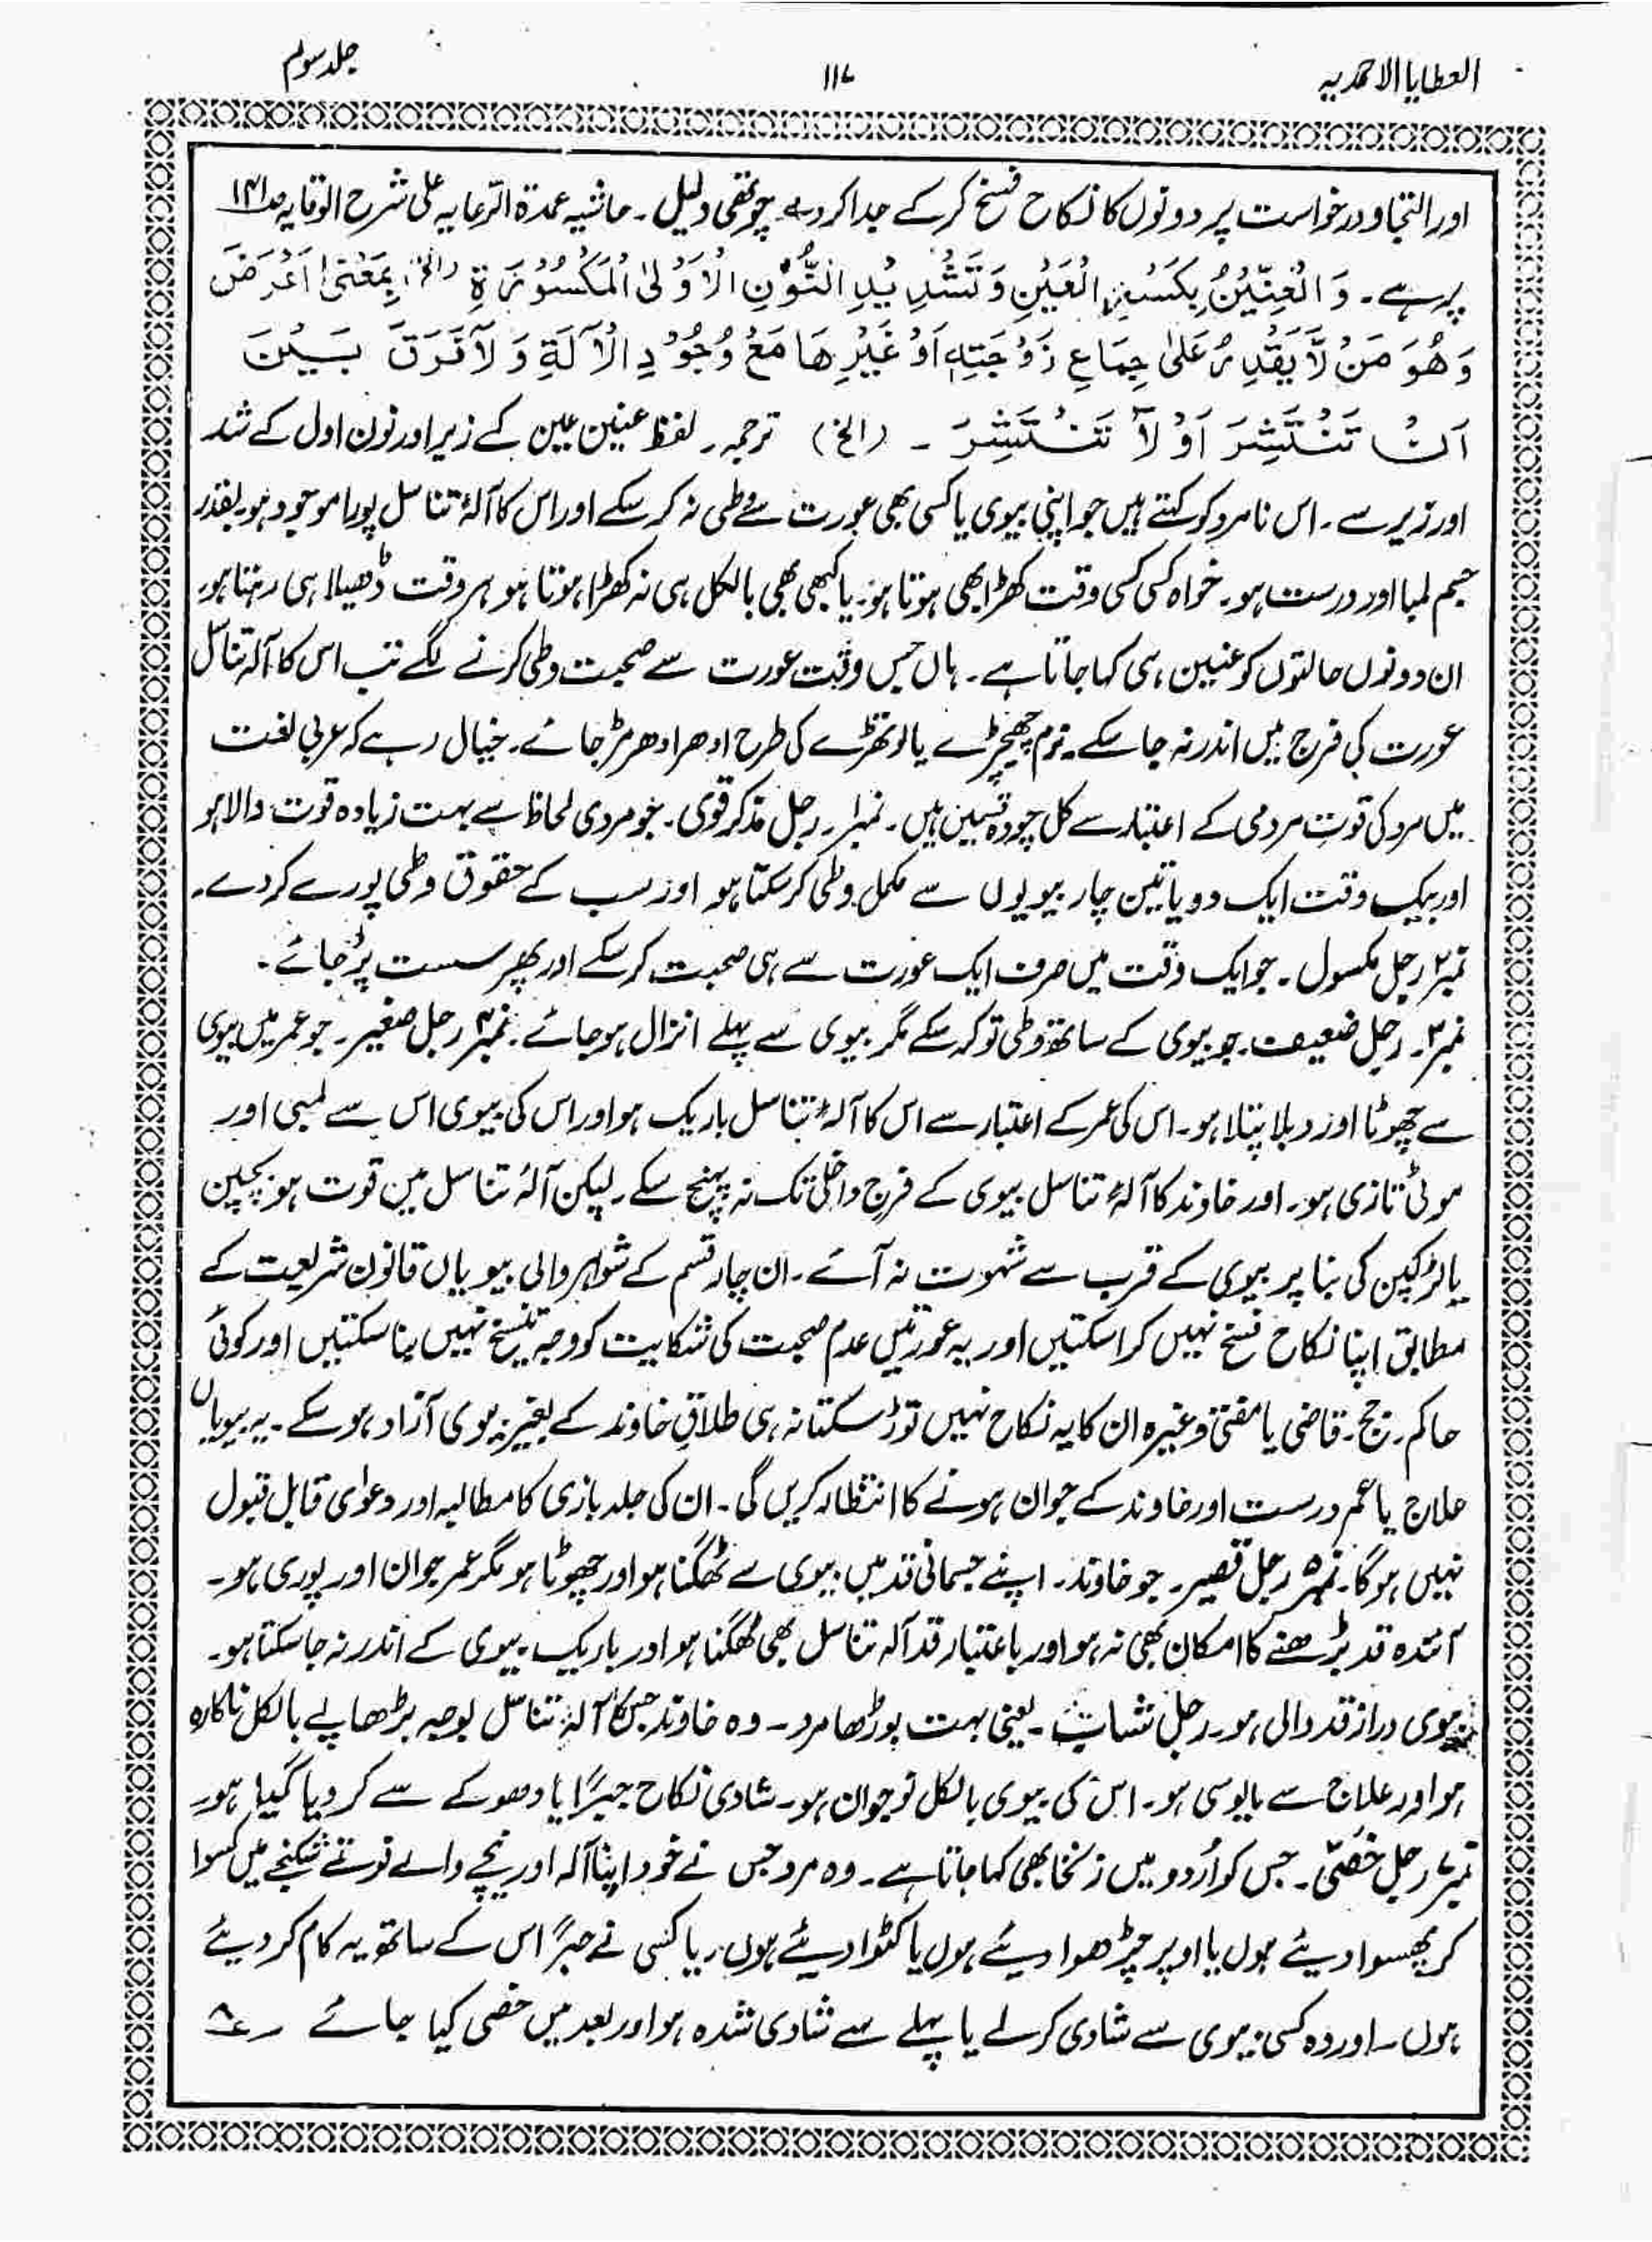 العطایا الاحمدیہ ۱۱۷ جلد سوم
اور التجا و درخواست پر دونوں کا نکاح فسخ کر کے جدا کر دے۔ چوتھی دلیل۔ حاشیہ عمدۃ الرّعایہ علی شرح الوقایہ صـ۱۴۱
پر ہے۔ وَالْعِنِّیْنُ بِکَسْرِ الْعَیْنِ وَ تَشْدِیْدِ النُّوْنِ الْاَوْلٰی الْمَکْسُوْرَۃِ (الخ) بِمَعْنٰی اَعْرَضَ
وَھُوَ مَنْ لَّا یَقْدِرُ عَلٰی جِمَاعِ زَوْجَتِہٖ اَوْ غَیْرِھَا مَعْ وُجُوْدِ الْاٰلَۃِ وَلَا فَرَقَ بَیْنَ
اَنْ تَنْتَشِرَ اَوْ لَا تَنْتَشِرَ ۔ (الخ) ترجمہ۔ لفظ عنین عین کے زیر اور نون اول کے شد
اور زیر سے۔ اس نامرد کو کہتے ہیں جو اپنی بیوی یا کسی بھی عورت سے وطی نہ کر سکے اور اس کا آلۂ تناسل پورا موجود ہو بقدر
جسم لمبا اور درست ہو۔ خواہ کسی کسی وقت کھڑا بھی ہوتا ہو۔ یا کبھی بھی بالکل ہی نہ کھڑا ہوتا ہو ہر وقت ڈھیلا ہی رہتا ہو
ان دونوں حالتوں کو عنین ہی کہا جاتا ہے۔ ہاں جس وقت عورت سے صحبت وطی کرنے لگے تب اس کا آلہ تناسل
عورت کی فرج میں اندر نہ جا سکے۔ نرم چھیچھڑے یا لوتھڑے کی طرح ادھر ادھر مڑ جائے۔ خیال رہے کہ عربی لغت
میں مرد کی قوتِ مردمی کے اعتبار سے کل چودہ قسمیں ہیں۔ نمبر۱۔ رجل مذکر قوی۔ جو مردی لحاظ سے بہت زیادہ قوت والا ہو
اور بیک وقت ایک دو یا تین چار بیویوں سے مکمل وطی کر سکتا ہو اور سب کے حقوق وطی پورے کر دے۔
نمبر۲ رجل مکسول۔ جو ایک وقت میں صرف ایک عورت سے ہی صحبت کر سکے اور پھر سست پڑ جائے۔
نمبر۳۔ رجل ضعیف۔ جو بیوی کے ساتھ وطی تو کر سکے مگر بیوی سے پہلے انزال ہو جائے۔ نمبر۴ رجل صغیر۔ جو عمر میں بیوی
سے چھوٹا اور دبلا پتلا ہو۔ اس کی عمر کے اعتبار سے اس کا آلۂ تناسل باریک ہو اور اس کی بیوی اس سے لمبی اور
موٹی تازی ہو۔ اور خاوند کا آلۂ تناسل بیوی کے فرج داخل تک نہ پہنچ سکے۔ لیکن آلۂ تناسل میں قوت ہو بچپن
یا لڑکپن کی بنا پر بیوی کے قرب سے شہوت نہ آئے۔ ان چار قسم کے شوہر والی بیویاں قانون شریعت کے
مطابق اپنا نکاح فسخ نہیں کرا سکتیں اور یہ عورتیں عدم صحبت کی شکایت کو وجہ تنسیخ نہیں بنا سکتیں اور کوئی
حاکم۔ جج۔ قاضی یا مفتی وغیرہ ان کا یہ نکاح نہیں توڑ سکتا نہ ہی طلاقِ خاوند کے بغیر بیوی آزاد ہو سکے۔ یہ بیویاں
علاج یا عمر درست اور خاوند کے جوان ہونے کا انتظار کریں گی۔ ان کی جلد بازی کا مطالبہ اور دعوٰی قابل قبول
نہیں ہوگا۔ نمبر۵ رجل قصیر۔ جو خاوند۔ اپنے جسمانی قد میں بیوی سے ٹھگنا ہو اور چھوٹا ہو مگر عمر جوان اور پوری ہو۔
آئندہ قد بڑھنے کا امکان بھی نہ ہو اور باعتبار قد آلہ تناسل بھی ٹھگنا ہو اور باریک بیوی کے اندر نہ جا سکتا ہو۔
بیوی دراز قد والی ہو۔ رجل شاب۔ یعنی بہت بوڑھا مرد۔ وہ خاوند جس کا آلۂ تناسل بوجہ بڑھاپے بالکل ناکارہ
ہو اور علاج سے مایوسی ہو۔ اس کی بیوی بالکل نوجوان ہو۔ شادی نکاح جبرًا یا دھوکے سے کر دیا گیا ہو۔
نمبر۷ رجل خصّی۔ جس کو اُردو میں زنخا بھی کہا جاتا ہے۔ وہ مرد جس نے خود اپنا آلہ اور نیچے والے فوتے شکنجے میں کسوا
کر پھسوا دیئے ہوں یا اوپر چڑھوا دیئے ہوں یا کٹوا دیئے ہوں۔ یا کسی نے جبرًا اس کے ساتھ یہ کام کر دیئے
ہوں۔ اور وہ کسی بیوی سے شادی کر لے یا پہلے سے شادی شدہ ہو اور بعد میں خصی کیا جائے ۔ ۸